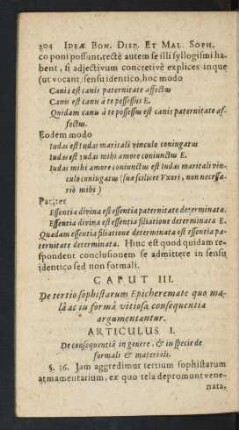 304 IDEÆ BON. DISP. ET MAL. SOPH.
co poni possunt, rectè autem se illi syllogismi ha-
bent, si adjectivum concretivè explices inque
(ut vocant) sensu identico, hoc modo
Canis est canis paternitate affectus
Canis est canis à te possessus E.
Quidam canis à te possessus est canis paternitate af-
fectus.
Eodem modo
Iudas est Iudas maritali vinculo coniugatus
Iudas est Iudas mihi amore coniunctus E.
Iudas mihi amore coniunctus est Iudas maritali vin-
culo coniugatus (sua scilicet Vxori, non necessa-
riò mihi)
Pariter
Essentia divina est essentia paternitate determinata.
Essentia divina est essentia filiatione determinata E.
Quædam essentia filiatione determinata est essentia pa-
ternitate determinata. Hinc est quod quidam re-
spondent conclusionem se admittere in sensu
identico sed non formali.
CAPUT III.
De tertio sophistarum Epicheremate quo ma-
lâ ac in formâ vitiosâ consequentia
argumentantur.
ARTICULUS I.
De consequentiâ in genere, & in specie de
formali & materiali.
§. 16. Jam aggredimur tertium sophistarum
armamentarium, ex quo tela depromunt vene-
nata,